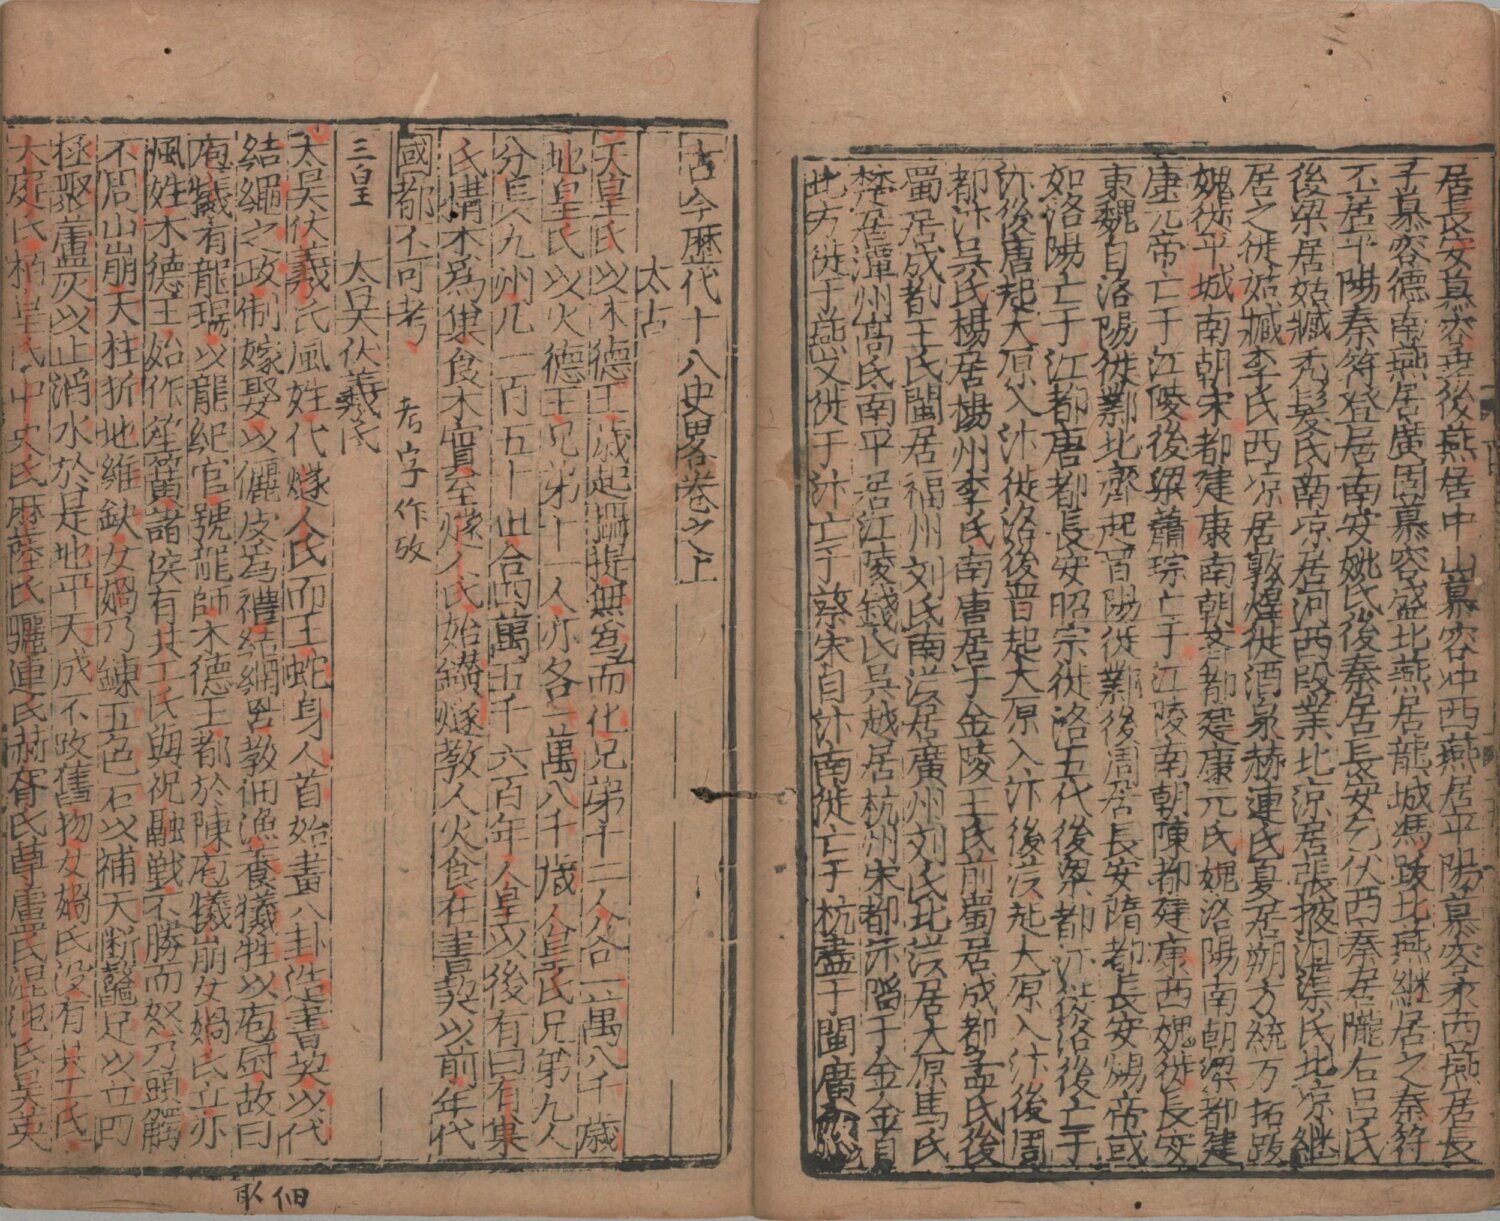 居長安慕容垂後燕居中山慕容冲西燕居平陽慕容永西燕居長
子慕容德南燕居廣固慕容盛北燕居龍城馮跋北燕継居之秦符
丕居平陽秦符登居南安姚氏後秦居長安乞伏西秦居隴右呂氏
後梁居姑臧禿髮氏南凉居河西段業北凉居張掖沮渠氏北凉継
居之徙姑臧李氏西凉居敦煌徙酒泉赫連氏夏居朔方統万拓跋
魏徙平城南朝宋都建康南朝齐都建康元氏魏洛陽南朝梁都建
康元帝亡于江陵後梁蕭琮亡于江陵南朝陳都建康西魏徙長安
東魏自洛陽徙鄴北齊起晋陽徙鄴後周居長安隋都長安煬帝或
如洛陽亡于江都唐都長安昭宗徙洛五代後梁都汴徙洛後亡于
汴後唐起大原入汴徙洛後晋起大原入汴後漢起大原入汴後周
都汴吴氏楊居揚州李氏南唐居于金陵王氏前蜀居成都孟氏後
蜀居成都王氏閩居福州刘氏南漢居廣州刘氏北漢居大原馬氏
楚居潭州髙氏南平居江陵錢氏吴越居杭州宋都汴陷于金金自
北方徙于燕又徙于汴亡于蔡宋自汴南徙亡于杭盡于閩廣
古今歷代十八史畧卷之上
太古
天皇氏以木德王歳起攝提無爲而化兄弟十二人各一萬八千歳
地皇氏以火德王兄弟十一人亦各一萬八千歳人皇氏兄弟九人
分長九州凡一百五十世合四萬五千六百年人皇以後有曰有巢
氏構木爲巢食木實至燧人氏始鑚燧教人火食在書契以前年代
國都不可考 考字作攷
三皇 太昊伏羲氏
太昊伏羲氏風姓代燧人氏而王蛇身人首始畫八卦造書契以代
結繩之政制嫁娶以儷皮爲禮結網罟教佃漁養犧牲以庖厨故曰
庖犧有龍瑞以龍紀官號龍師木德王都於陳庖犧崩女媧氏立亦
風姓木德王始作笙簧諸侯有共工氏與祝融戰不勝而怒乃頭觸
不周山崩天柱折地維缺女媧乃錬五色石以補天断鼇足以立四
極聚蘆灰以止滔水於是地平天成不改舊物女媧氏没有共工氏
大庭氏柏皇氏中央氏歴陸氏驪連氏赫胥氏尊盧氏混沌氏昊英
佃